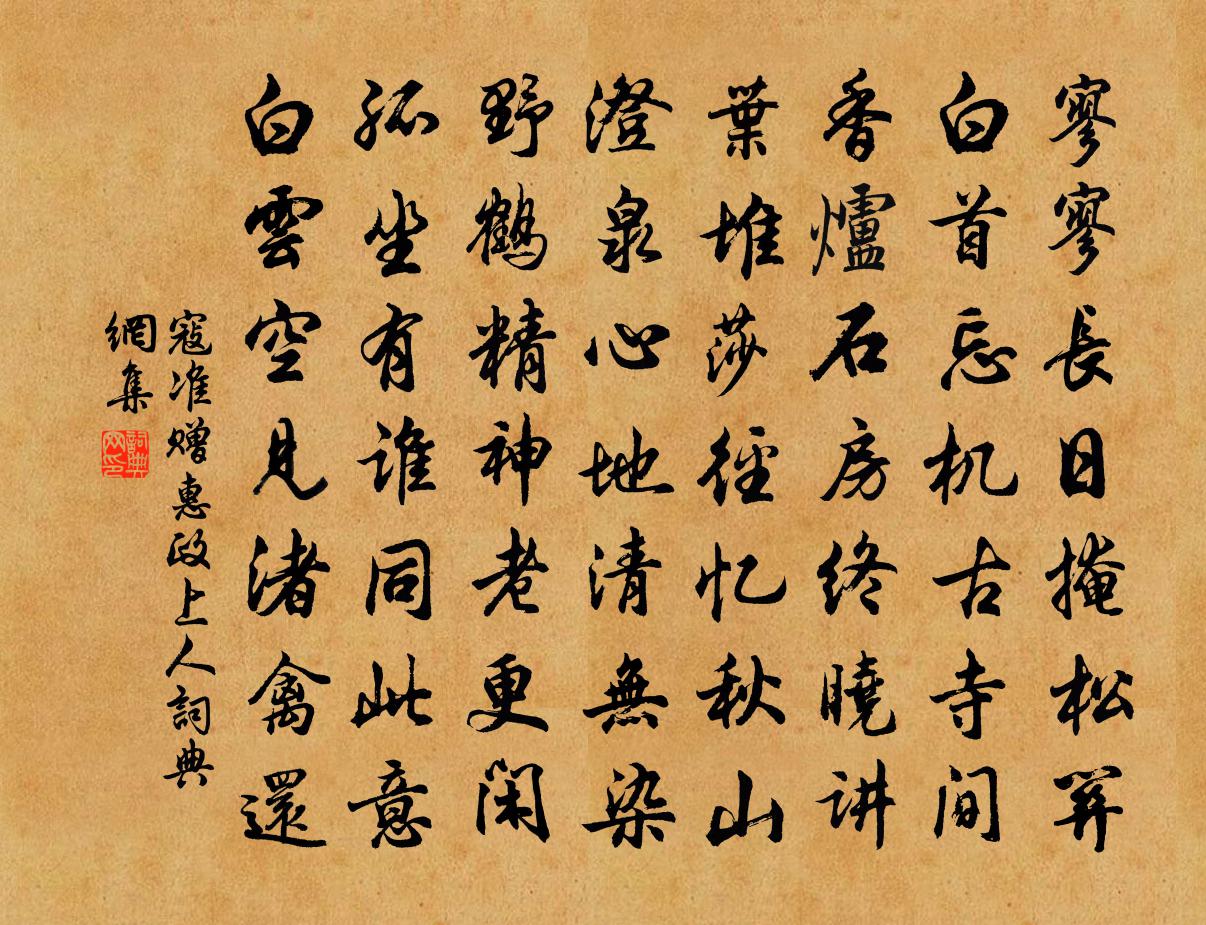 寥寥長日掩松關
白首忘机古寺间
香爐石房终曉讲
葉堆莎徑忆秋山
澄泉心地清無染
野鶴精神老更闲
孤坐有谁同此意
白雲空見渚禽還
寇准赠惠政上人詞典
網集
詞典网印